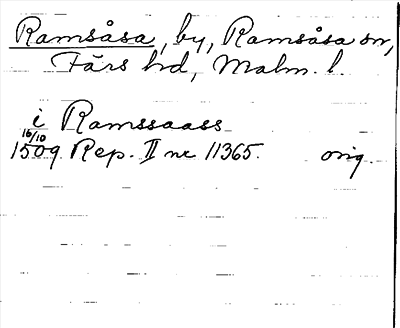 Ramsåsa, by, Ramsåsa sn,
Färs hd, Malm. l.
i Ramssaass
16/10
1509 Rep. II nr 11365. orig.